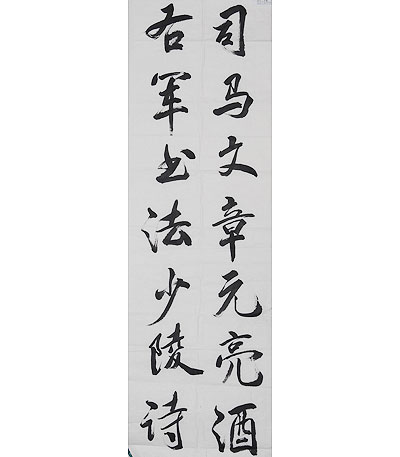 司马文章元亮酒
右军书法少陵诗